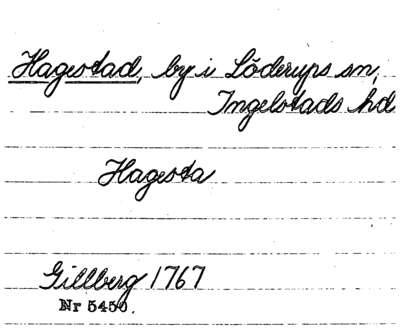 Hagestad, by i Löderups sn,
Ingelstads hd
Hagesta
Gillberg 1767
Nr 5450.